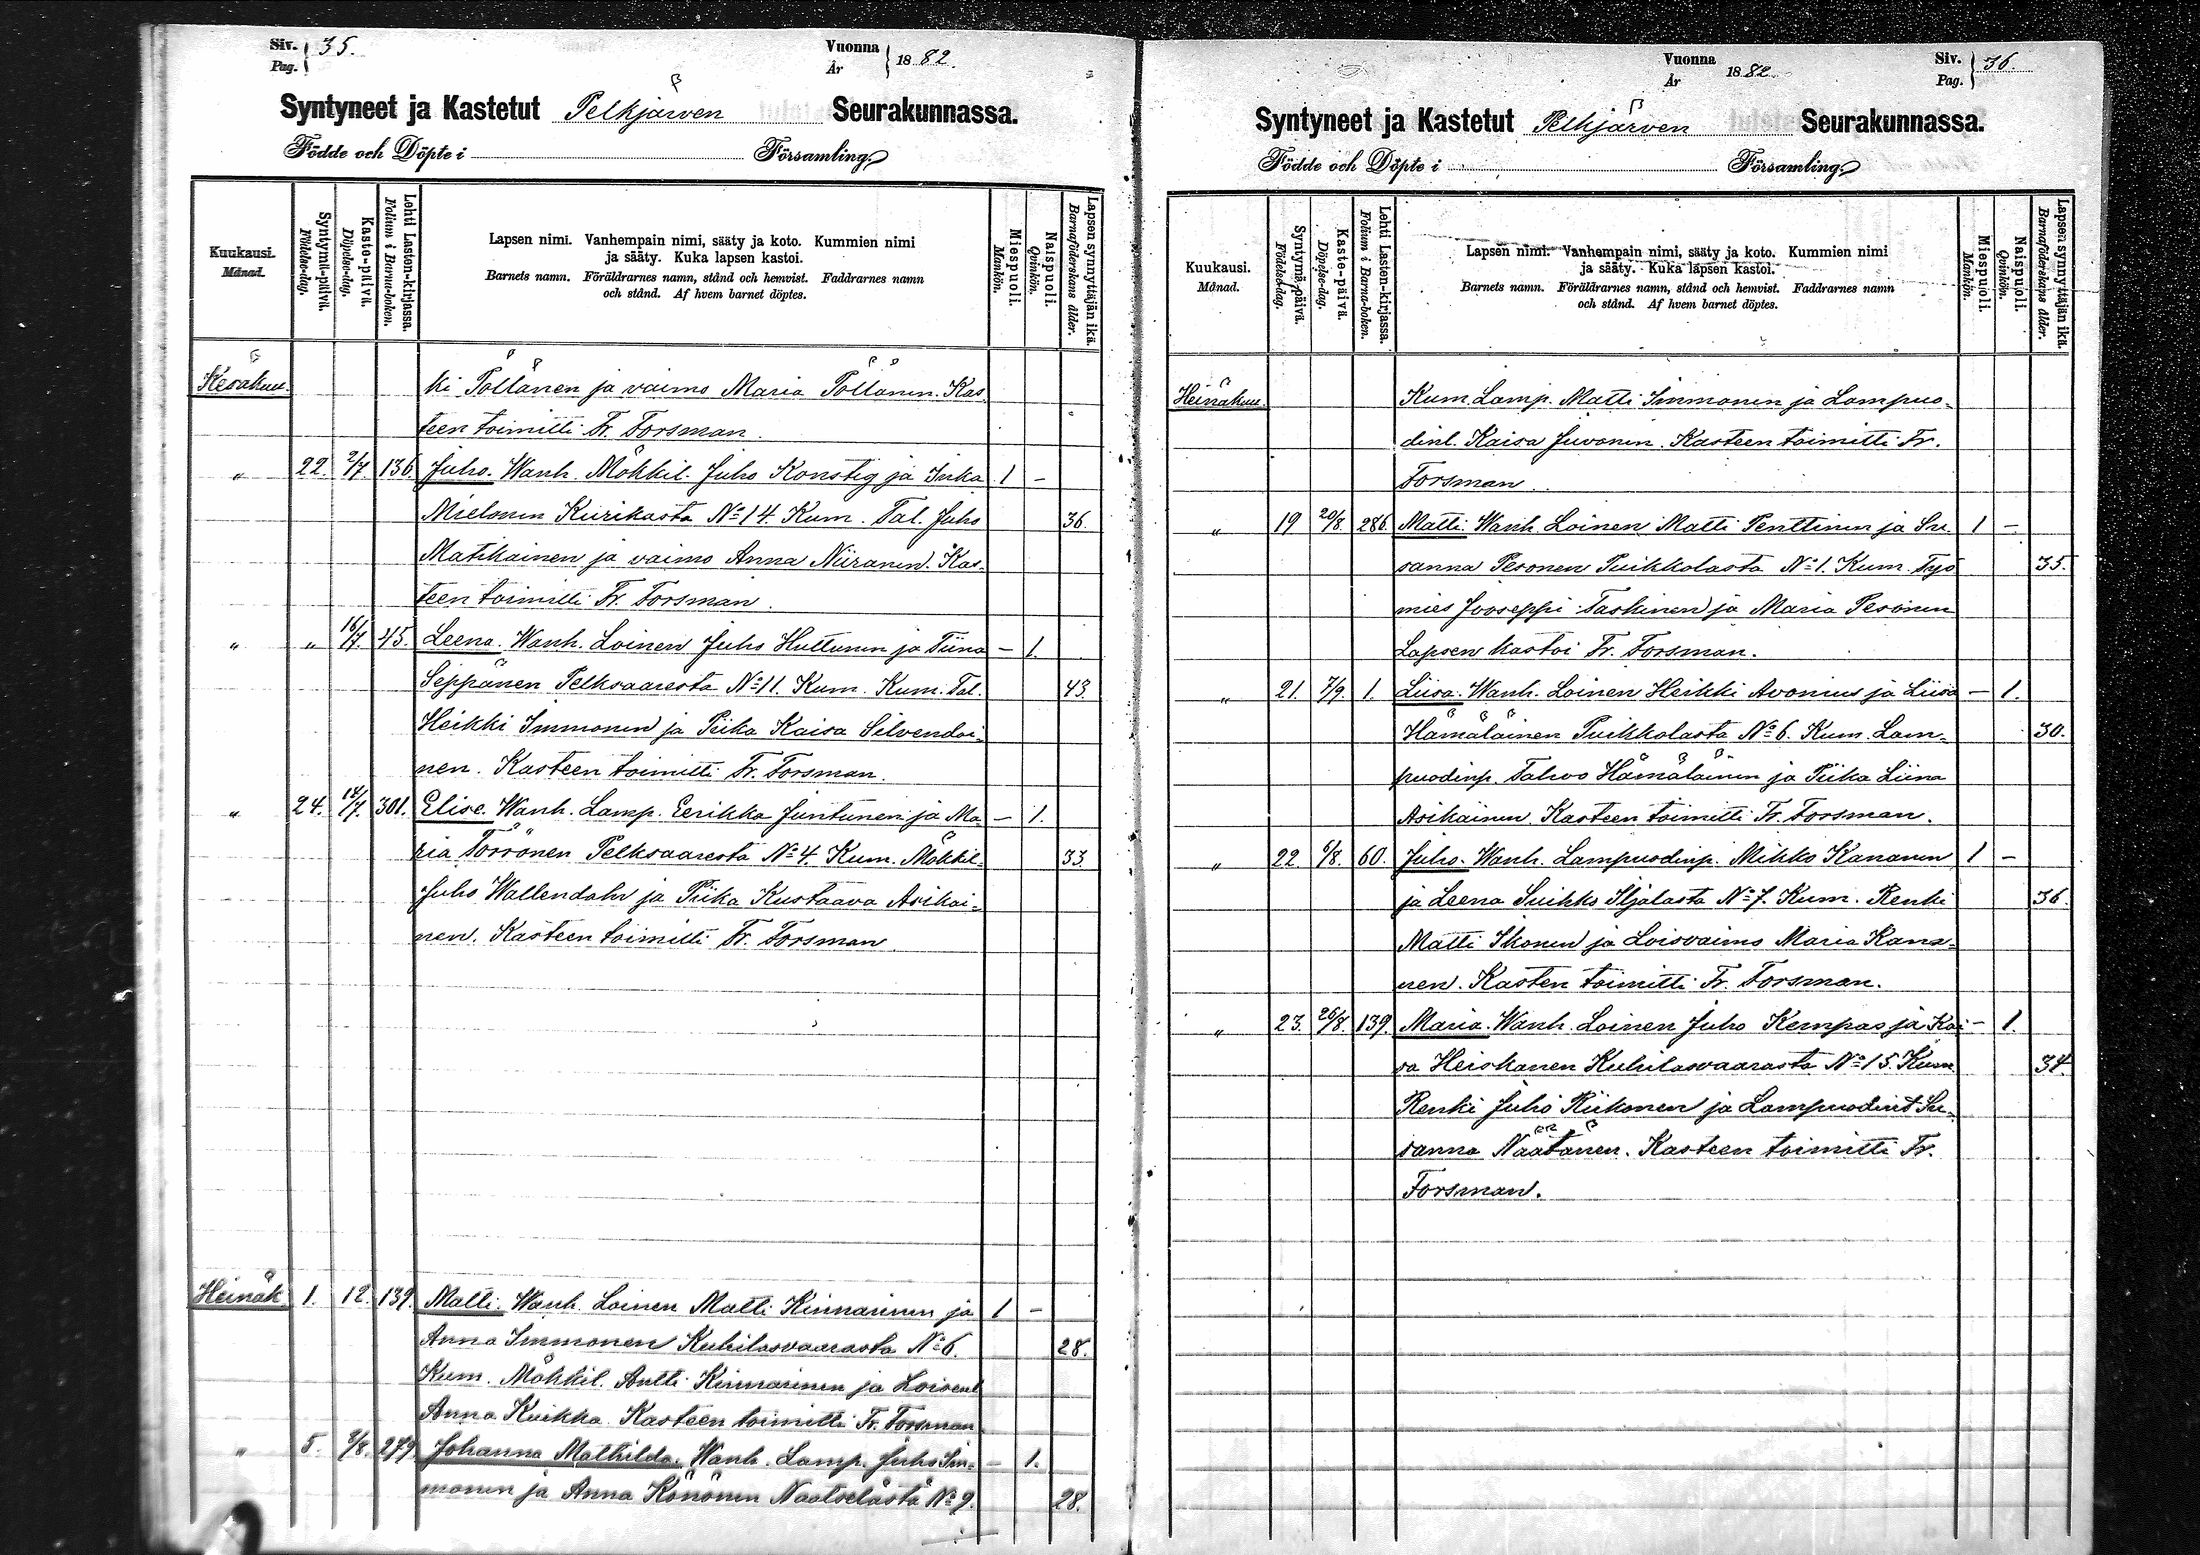 Siv. 35.
Pag.
Vuonna 1882.
År
Syntyneet ja Kastetut Pelkjärven Seurakunnassa.
Födde och Döpte i Församling
Kuukausi.
Månad.
Syntymä-päivä.
Födelse-dag.
Kaste-päivä.
Döpelse-dag.
Lehti Lasten-kirjassa.
Folium i Barna-boken.
Lapsen nimi. Vanhempain nimi, sääty ja koto. Kummien nimi
ja sääty. Kuka lapsen kastoi.
Barnets namn. Föräldrarnes namn, stånd och hemvist. Faddrarnes namn
och stånd. Af hvem barnet döptes.
Miespuoli.
Mankön.
Naispuoli.
Qvinkön.
Lapsen synnyttäjän ikä.
Barnaföderskans ålder.
Kesäkuu. ki Pöllänen ja vaimo Maria Pöllänen. Kas
teen toimitti Fr. Forsman.
" 22. 2/7. 136. Juho. Wanh. Mökkil. Juho Konstig ja Inka 1 -
Mielonen Kurikasta No 14. Kum. Tal. Juho 36.
Matikainen ja vaimo Anna Niiranen. Kas-
teen toimitti Fr. Forsman.
" " 16/7. 45. Leena. Wanh. Loinen Juho Huttunen ja Tiina - 1.
Seppänen Pelksaaresta No 11. Kum. Kum. Tal. 43.
Heikki Immonen ja Piika Kaisa Silvendoi-
nen. Kasteen toimitti Fr. Forsman.
" 24. 14/7. 301. Elise. Wanh. Lamp. Eerikka Juntunen ja Ma- - 1.
ria Törrönen Pelksaaresta No 4. Kum. Mökkil. 33.
Juho Wallendahr ja Piika Kustaava Asikai-
nen. Kasteen toimitti Fr. Forsman.
Heinäk. 1. 12. 139. Matti. Wanh. Loinen Matti Kinnarinen ja 1 -
Anna Immonen Kuhilasvaarasta No 6. 28.
Kum. Mökkil. Antti Kinnarinen ja
Anna Kuikka. Kasteen toimitti Fr. Forsman
" 5. 3/8. 279. Johanna Mathilda. Wanh. Lamp. Juho Im- - 1.
monen ja Anna Könönen Naatselästä No 9. 28.
Vuonna 1882.
År
Siv. 36.
Pag.
Syntyneet ja Kastetut Pelkjärven Seurakunnassa.
Födde och Döpte i Församling
Kuukausi.
Månad.
Syntymä-päivä.
Födelse-dag.
Kaste-päivä.
Döpelse-dag.
Lehti Lasten-kirjassa.
Folium i Barna-boken.
Lapsen nimi. Vanhempain nimi, sääty ja koto. Kummien nimi
ja sääty. Kuka lapsen kastoi.
Barnets namn. Föräldrarnes namn, stånd och hemvist. Faddrarnes namn
och stånd. Af hvem barnet döptes.
Miespuoli.
Mankön.
Naispuoli.
Qvinkön.
Lapsen synnyttäjän ikä.
Barnaföderskans ålder.
Heinäkuu. Kum. Lamp. Matti Immonen ja Lampuo-
dinl. Kaisa Juvonen. Kasteen toimitti Fr.
Forsman.
" 19 20/8. 286. Matti. Wanh. Loinen Matti Penttinen ja Su- 1 -
sanna Pesonen Puikkolasta No 1. Kum. Työ 35.
mies Jooseppi Taskinen ja Maria Pesonen
Lapsen kastoi Fr. Forsman.
" 21. 7/9. 1. Liisa. Wanh. Loinen Heikki Avonius ja Liisa - 1.
Hämäläinen Puikkolasta No 6. Kum. Lam- 30.
puodinp. Tahvo Hämäläinen ja Piika Liina
Asikainen. Kasteen toimitti Fr. Forsman.
" 22. 6/8. 60. Juho. Wanh. Lampuodinp. Mikko Kananen 1 -
ja Leena Suikko Iljalasta No 7. Kum. Renki 36.
Matti Ikonen ja Loisvaimo Maria Kana-
nen. Kasten toimitti Fr. Forsman.
" 23. 26/8. 139. Maria. Wanh. Loinen Juho Kempas ja Kai - 1.
sa Heiskanen Kuhilasvaarasta No 15. Kum 34.
Renki Juho Riikonen ja Su-
sanna Näätänen. Kasteen toimitti Fr.
Forsman.